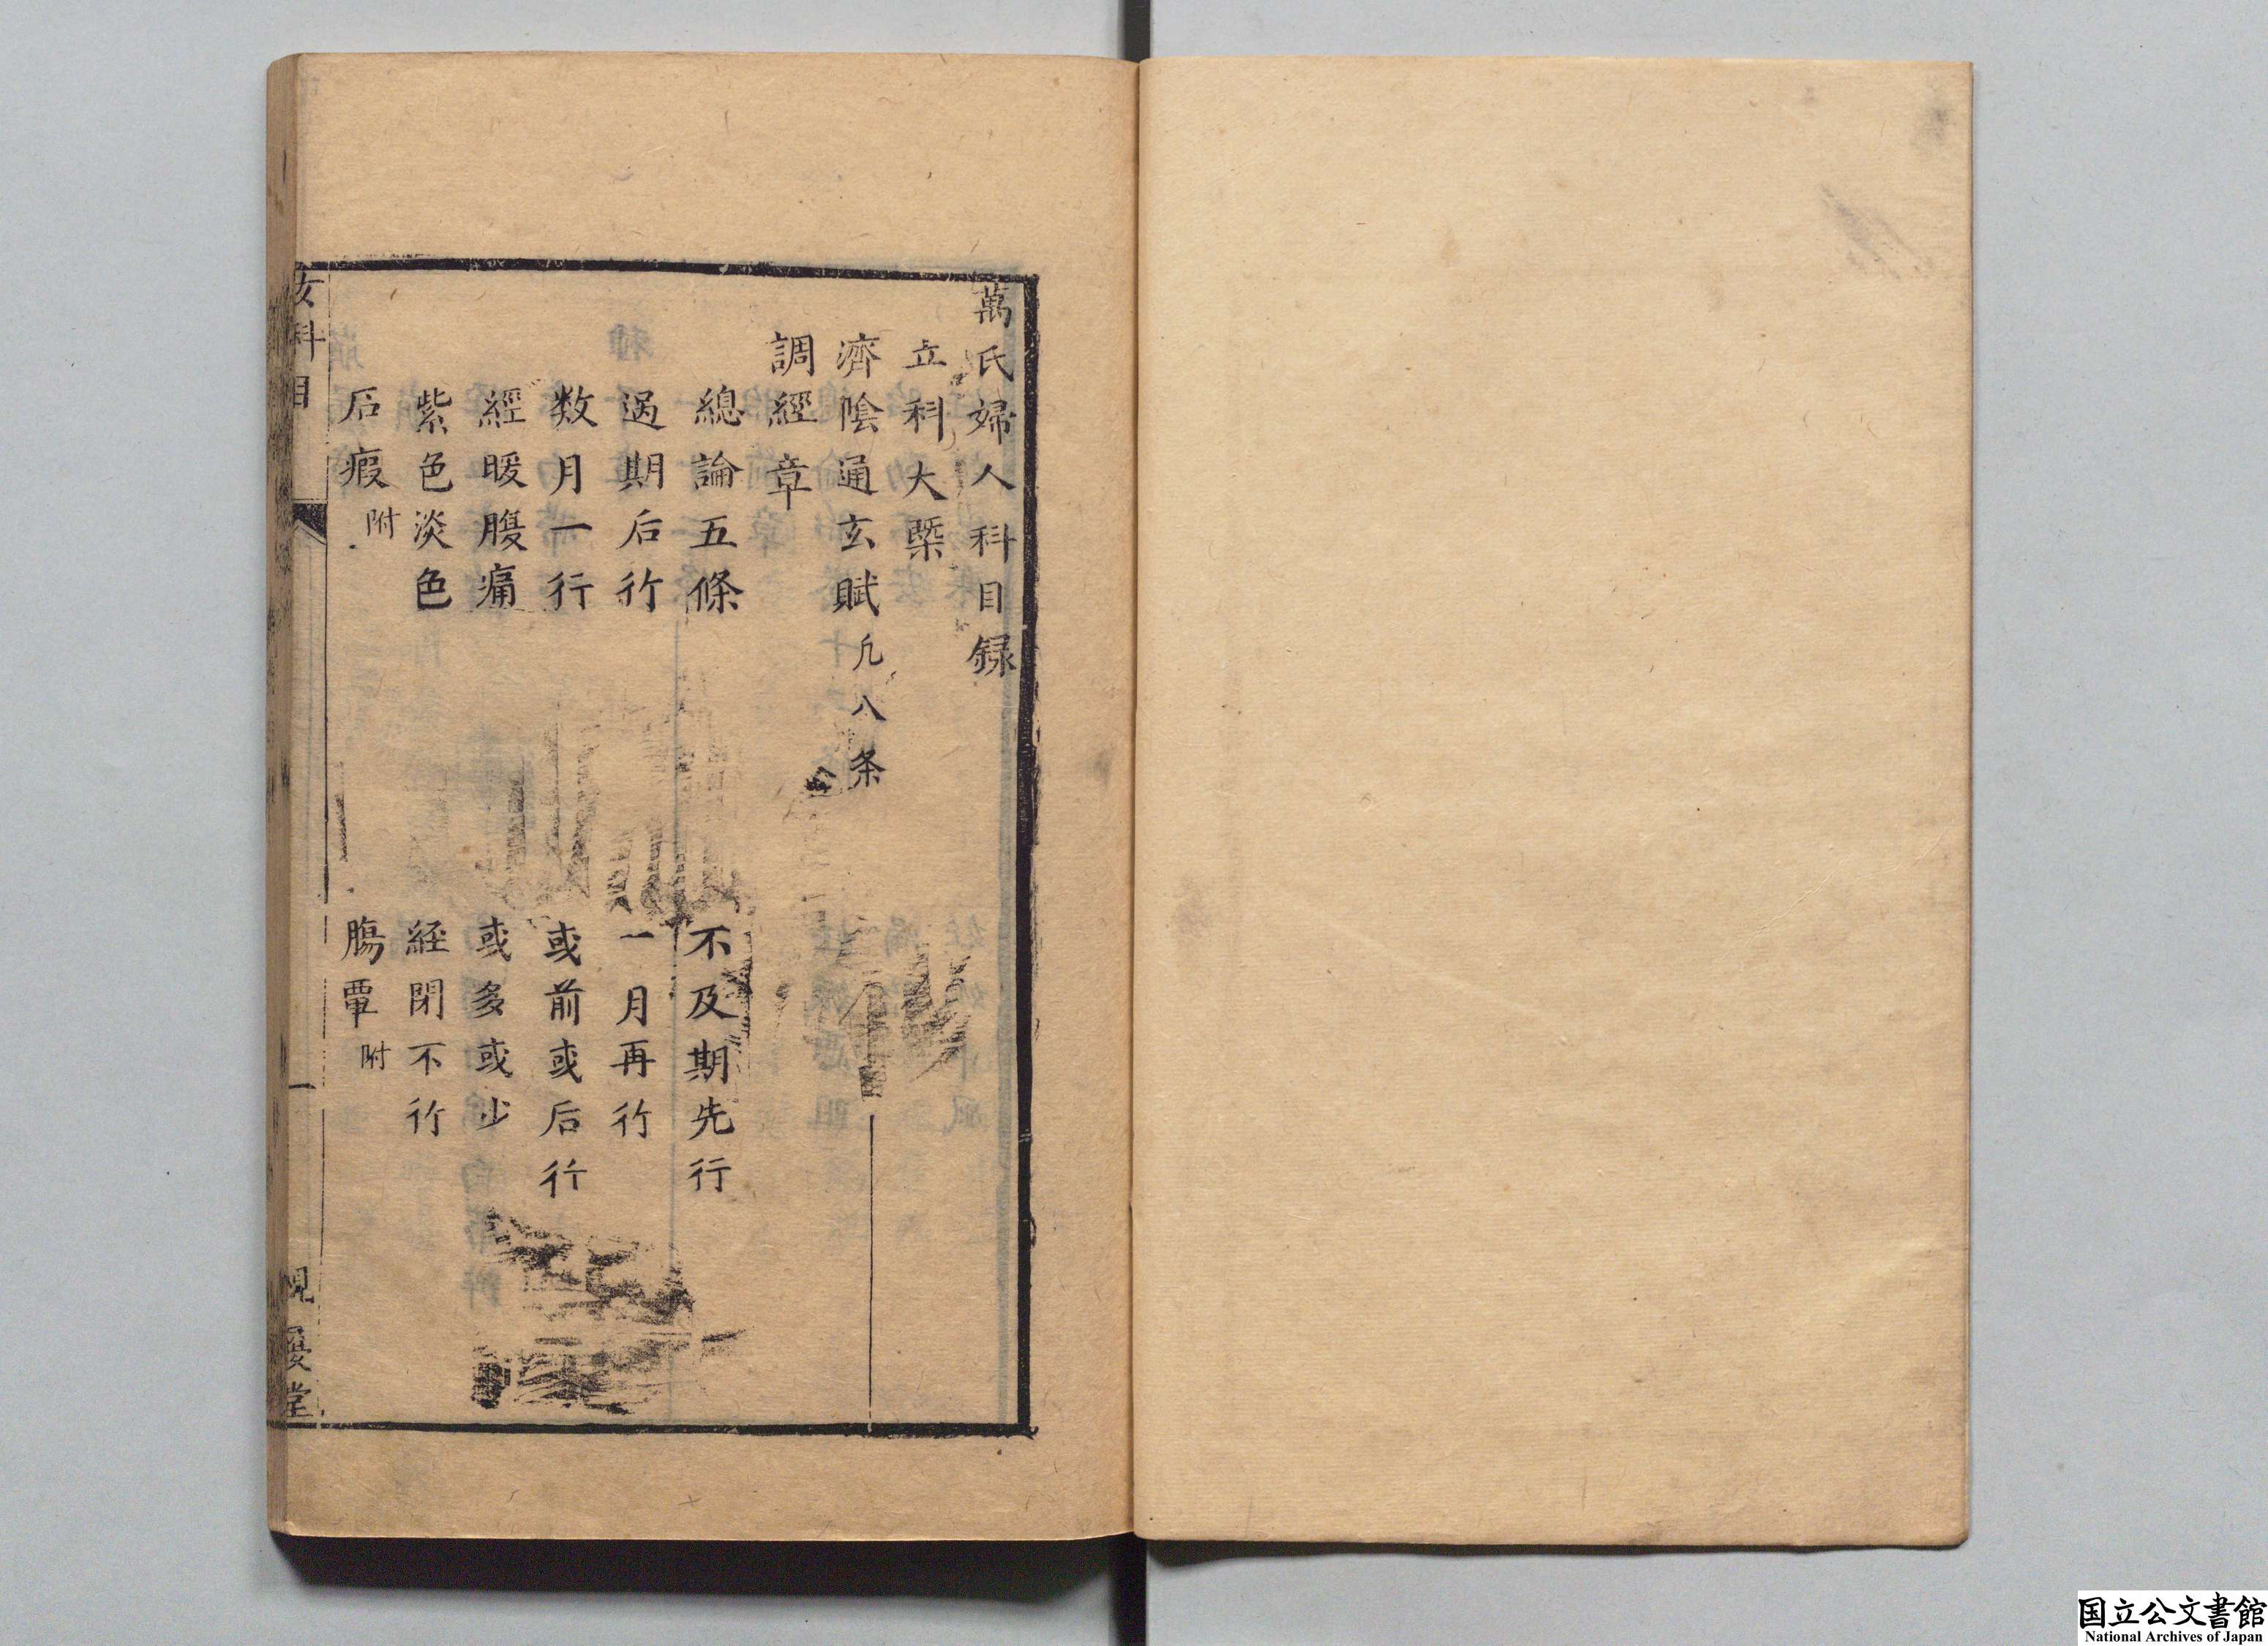 萬氏婦人科目録
立科大槩
濟陰通玄賦 凢八条
調經章
總論五條　不及期先行
過期后行　一月再行
数月一行　或前或后行
經暖腹痛　或多或少
紫色淡色　経閉不行
石瘕附　腸覃附
女科目　一　視履堂
国立公文書館
National Archives of Japan